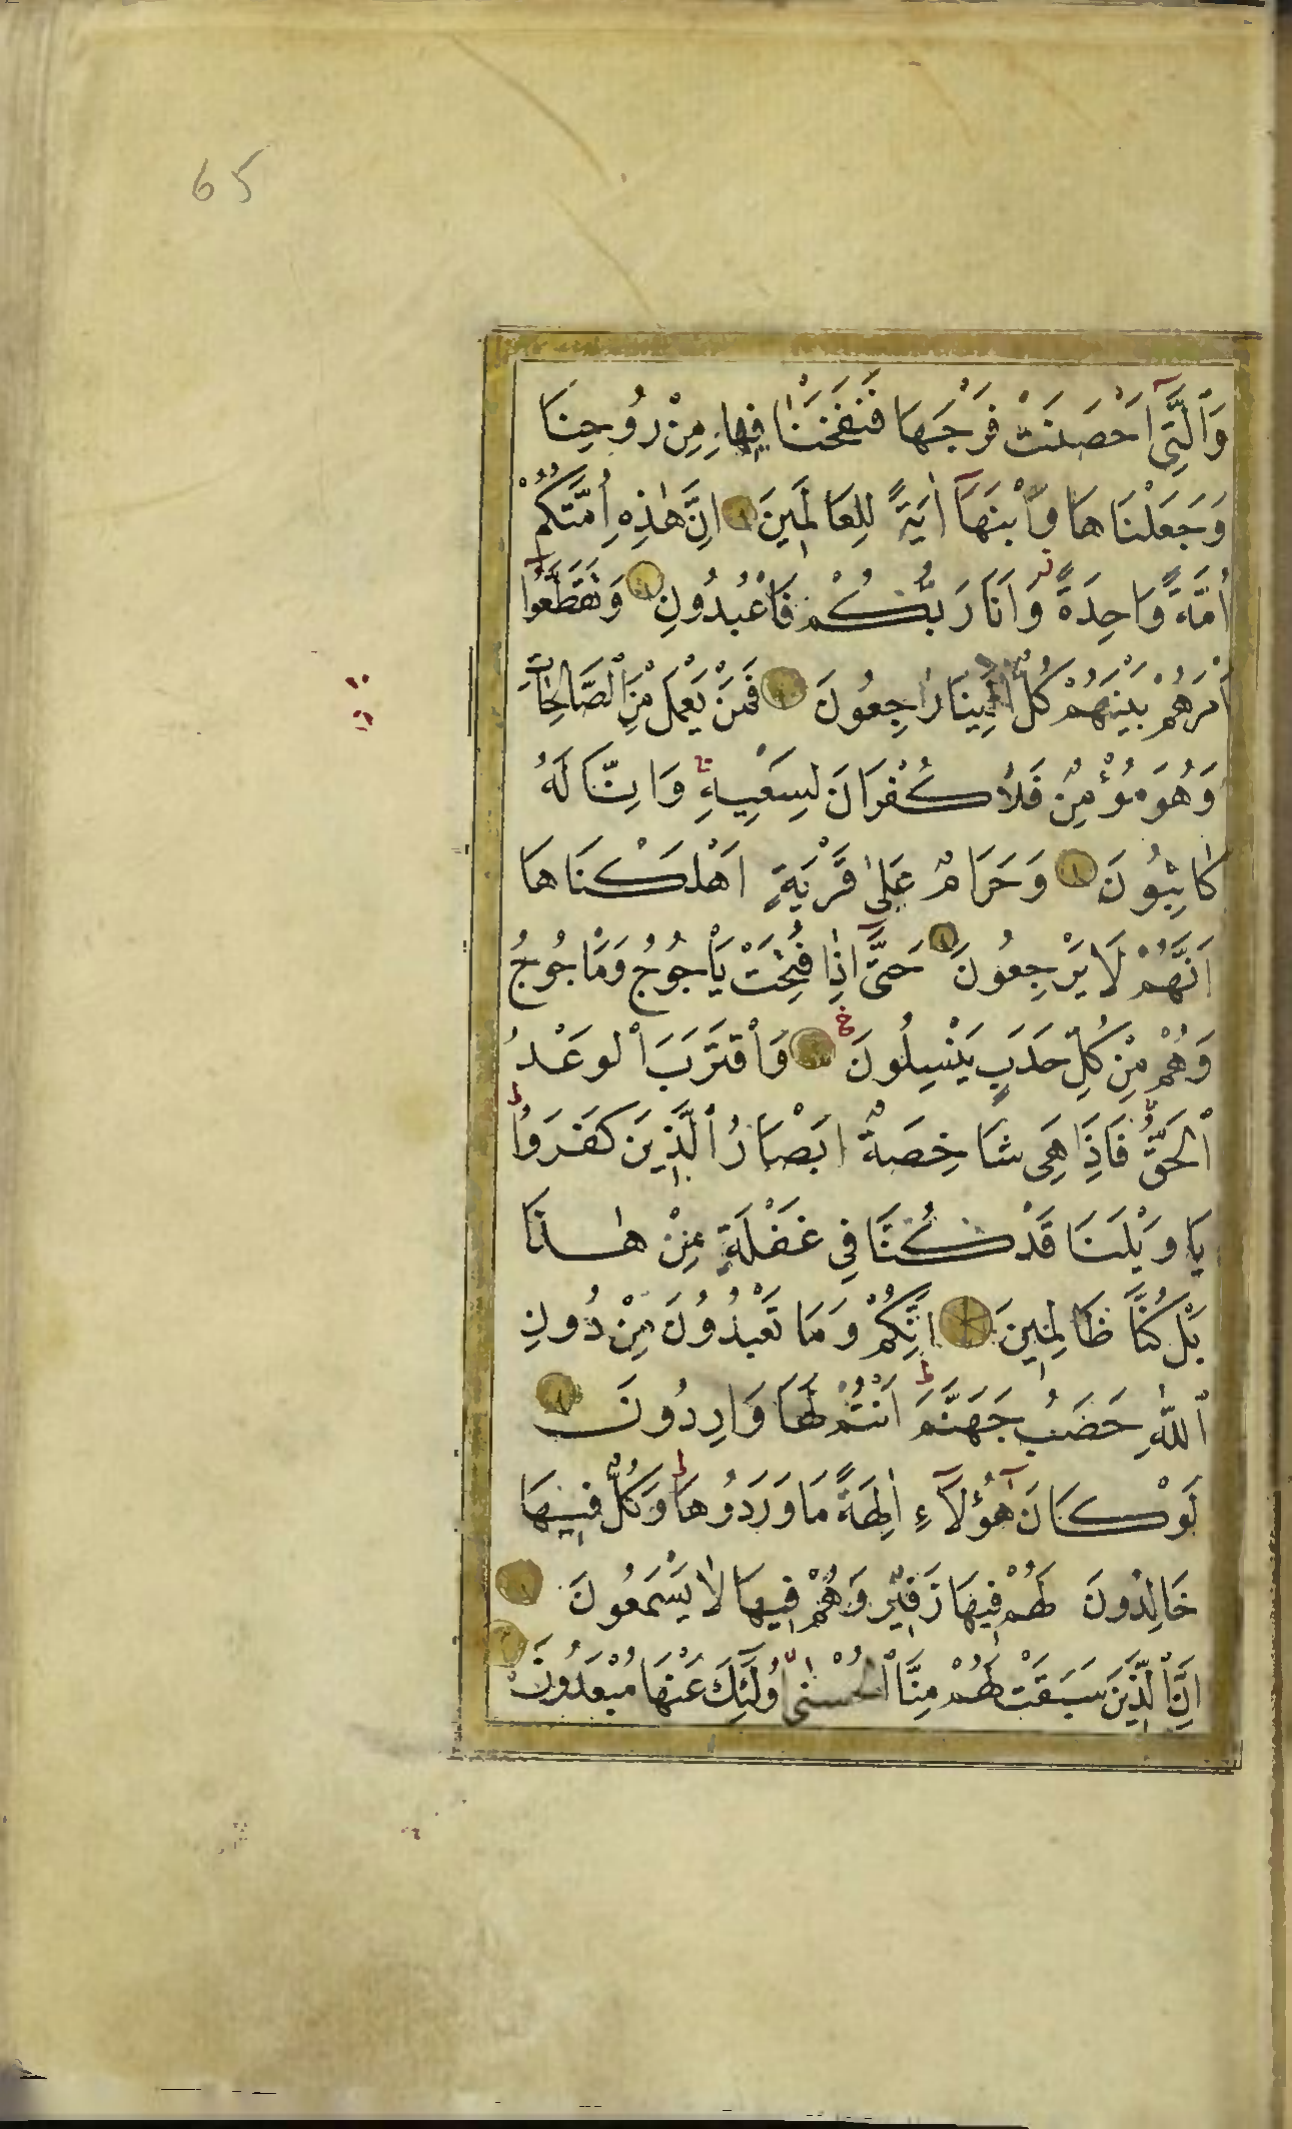 65
وَٱلَّتِىٓ اَحْصَنَتْ فَرْجَهَا فَنَفَخْنَا فِيهَا مِنْ رُوحِنَا
وَجَعَلْنَاهَا وَٱبْنَهَآ اٰيَةً لِلعَالَمِينَ اِنَّ هٰذِهِ اُمَّتُكُمْ
اُمَّةً وَاحِدَةً وَاَنَا رَبُّكُمْ فَاعْبُدُونِ وَتَقَطَّعُوٓا
اَمْرَهُمْ بَيْنَهُمْ كُلٌّ اِلَيْنَا رَاجِعُونَ فَمَنْ يَعْمَلْ مِنَ ٱلصَّالِحَاتِ
وَهُوَ مُؤْمِنٌ فَلَا كُفْرَانَ لِسَعْيِهِ وَاِنَّا لَهُ
كَاتِبُونَ وَحَرَامٌ عَلٰى قَرْيَةٍ اَهْلَكْنَاهَا
اَنَّهُمْ لَا يَرْجِعُونَ حَتّٰٓى اِذَا فُتِحَتْ يَأْجُوجُ وَمَأْجُوجُ
وَهُمْ مِنْ كُلِّ حَدَبٍ يَنْسِلُونَ وَٱقْتَرَبَ ٱلوَعْدُ
ٱلْحَقُّ فَاِذَا هِىَ شَاخِصَةٌ اَبْصَارُ ٱلَّذِينَ كَفَرُوا
يَا وَيْلَنَا قَدْ كُنَّا فِى غَفْلَةٍ مِنْ هٰذَا
بَلْ كُنَّا ظَالِمِينَ اِنَّكُمْ وَمَا تَعْبُدُونَ مِنْ دُونِ
ٱللّٰهِ حَصَبُ جَهَنَّمَ اَنْتُمْ لَهَا وَارِدُونَ
لَوْ كَانَ هٰٓؤُلَآءِ اٰلِهَةً مَا وَرَدُوهَا وَكُلٌّ فِيهَا
خَالِدُونَ لَهُمْ فِيهَا زَفِيرٌ وَهُمْ فِيهَا لَا يَسْمَعُونَ
اِنَّ ٱلَّذِينَ سَبَقَتْ لَهُمْ مِنَّا ٱلْحُسْنٰى اُولٰٓئِكَ عَنْهَا مُبْعَدُونَ